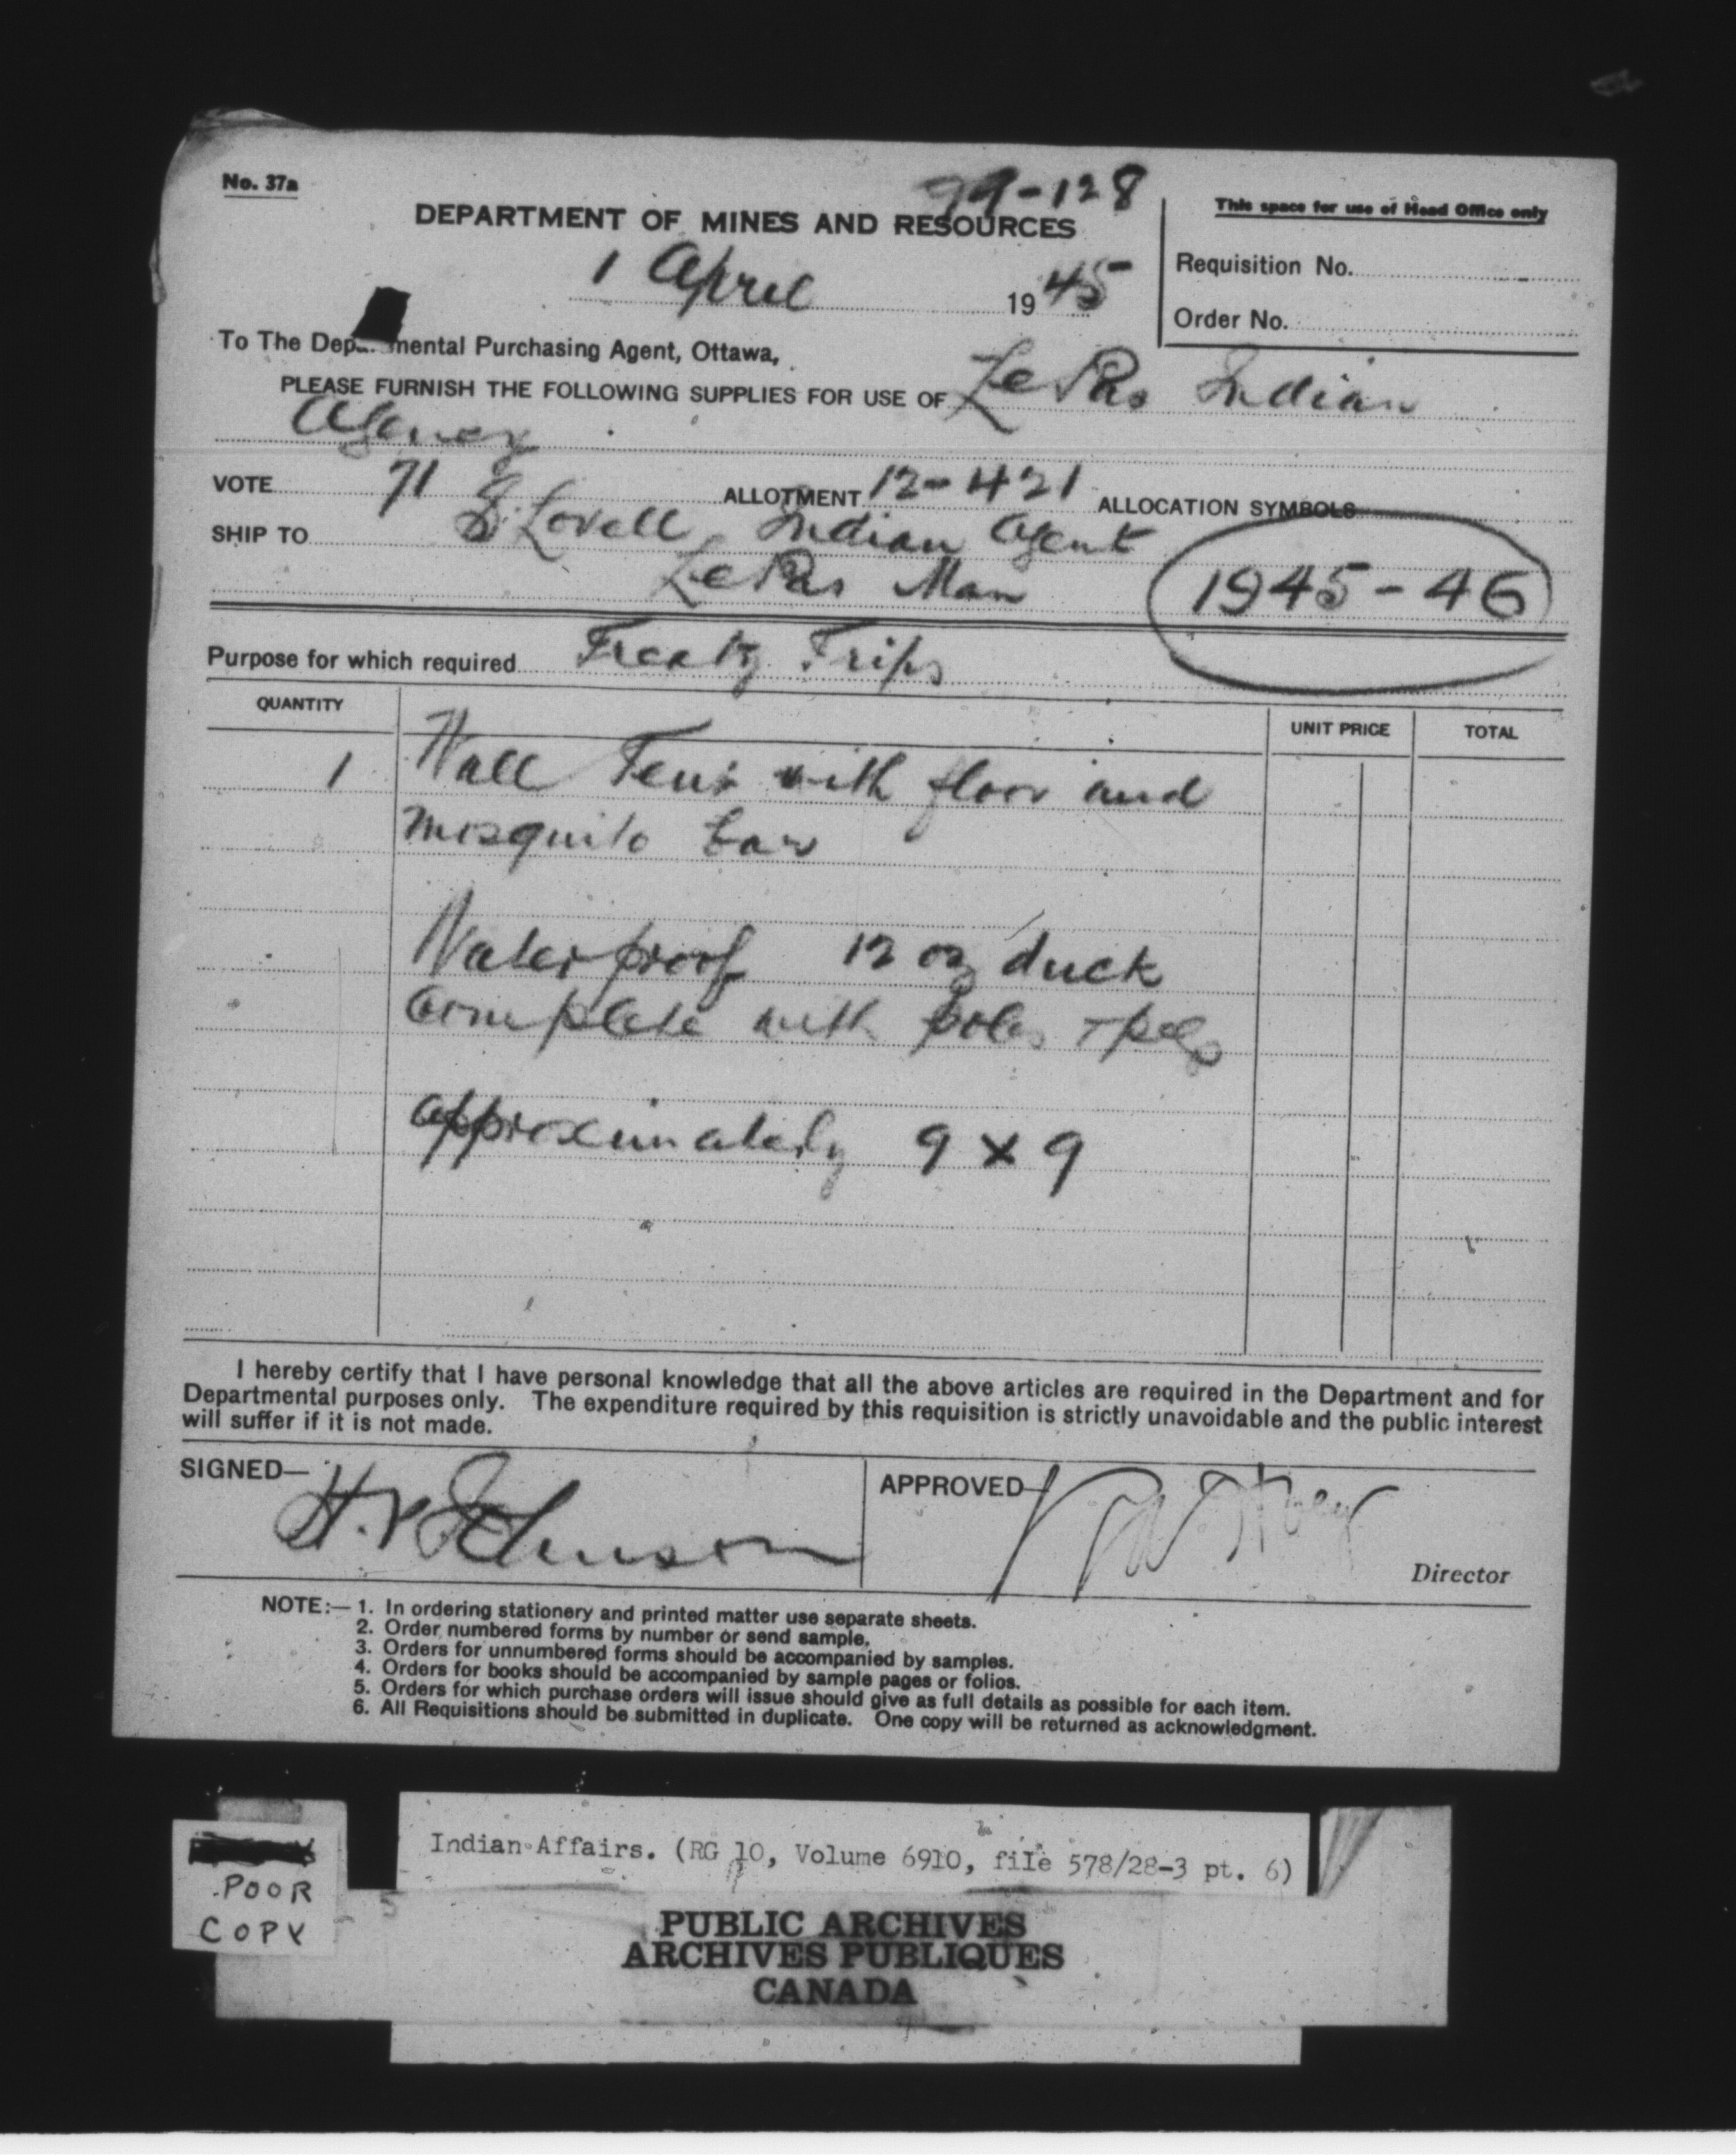 No. 37a
99-128
DEPARTMENT OF MINES AND RESOURCES
This space for use of Head Office only
1 April 1945
Requisition No.
Order No.
To The Dep mental Purchasing Agent, Ottawa,
PLEASE FURNISH THE FOLLOWING SUPPLIES FOR USE OF Le Pas Indian
Agency
VOTE 71 ALLOTMENT 12-421 ALLOCATION SYMBOLS
SHIP TO S Lovell Indian Agent
Le Pas Man
1945-46
Purpose for which required Treaty Trips
QUANTITY UNIT PRICE TOTAL
1 Wall Tent with floor and
mosquito bar
Waterproof 12 oz duck
complete with poles + pegs
approximately 9 x 9
I hereby certify that I have personal knowledge that all the above articles are required in the Department and for
Departmental purposes only. The expenditure required by this requisition is strictly unavoidable and the public interest
will suffer if it is not made.
SIGNED— Johnson
APPROVED—
Director
NOTE:— 1. In ordering stationery and printed matter use separate sheets.
2. Order numbered forms by number or send sample.
3. Orders for unnumbered forms should be accompanied by samples.
4. Orders for books should be accompanied by sample pages or folios.
5. Orders for which purchase orders will issue should give as full details as possible for each item.
6. All Requisitions should be submitted in duplicate. One copy will be returned as acknowledgment.
Indian Affairs. (RG 10, Volume 6910, file 578/28-3 pt. 6)
POOR
COPY
PUBLIC ARCHIVES
ARCHIVES PUBLIQUES
CANADA